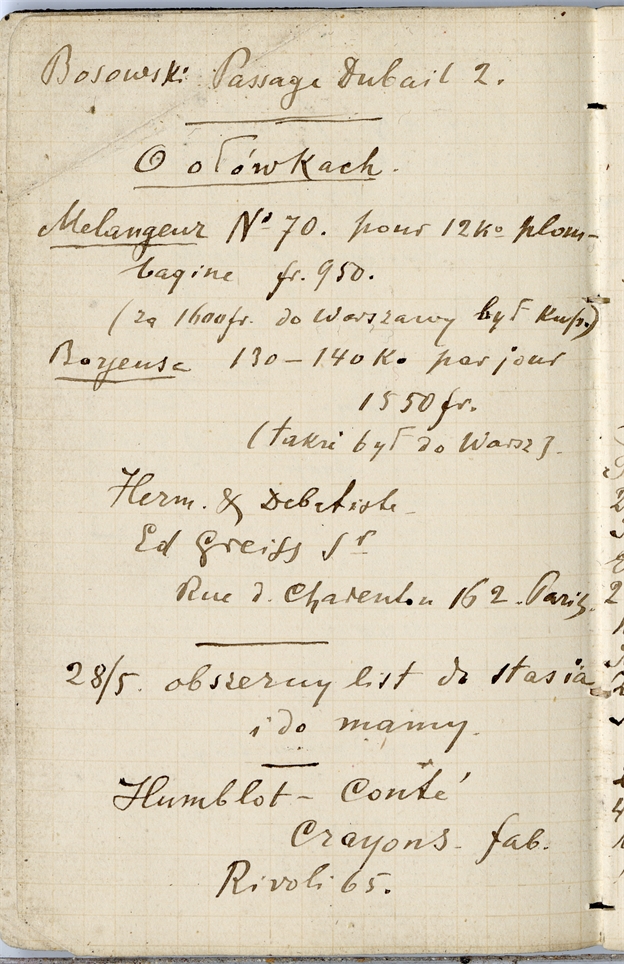 Bosowski Passage Dubail 2.
O ołówkach.
Melangeur No 70. pour 12 Ko plom-
bagine fr. 950.
(za 1600 fr. do Warszawy był kup.)
Boyeuse 130 – 140 Ko par jour
1550 fr.
(takze był do Warsz).
Herm. & Debatiste
Ed Greiss Sr
Rue d. Charenton 162. Paris.
28/5. obszerny list do Stasia
i do mamy.
Humblot – Conté
Crayons fab.
Rivoli 65.